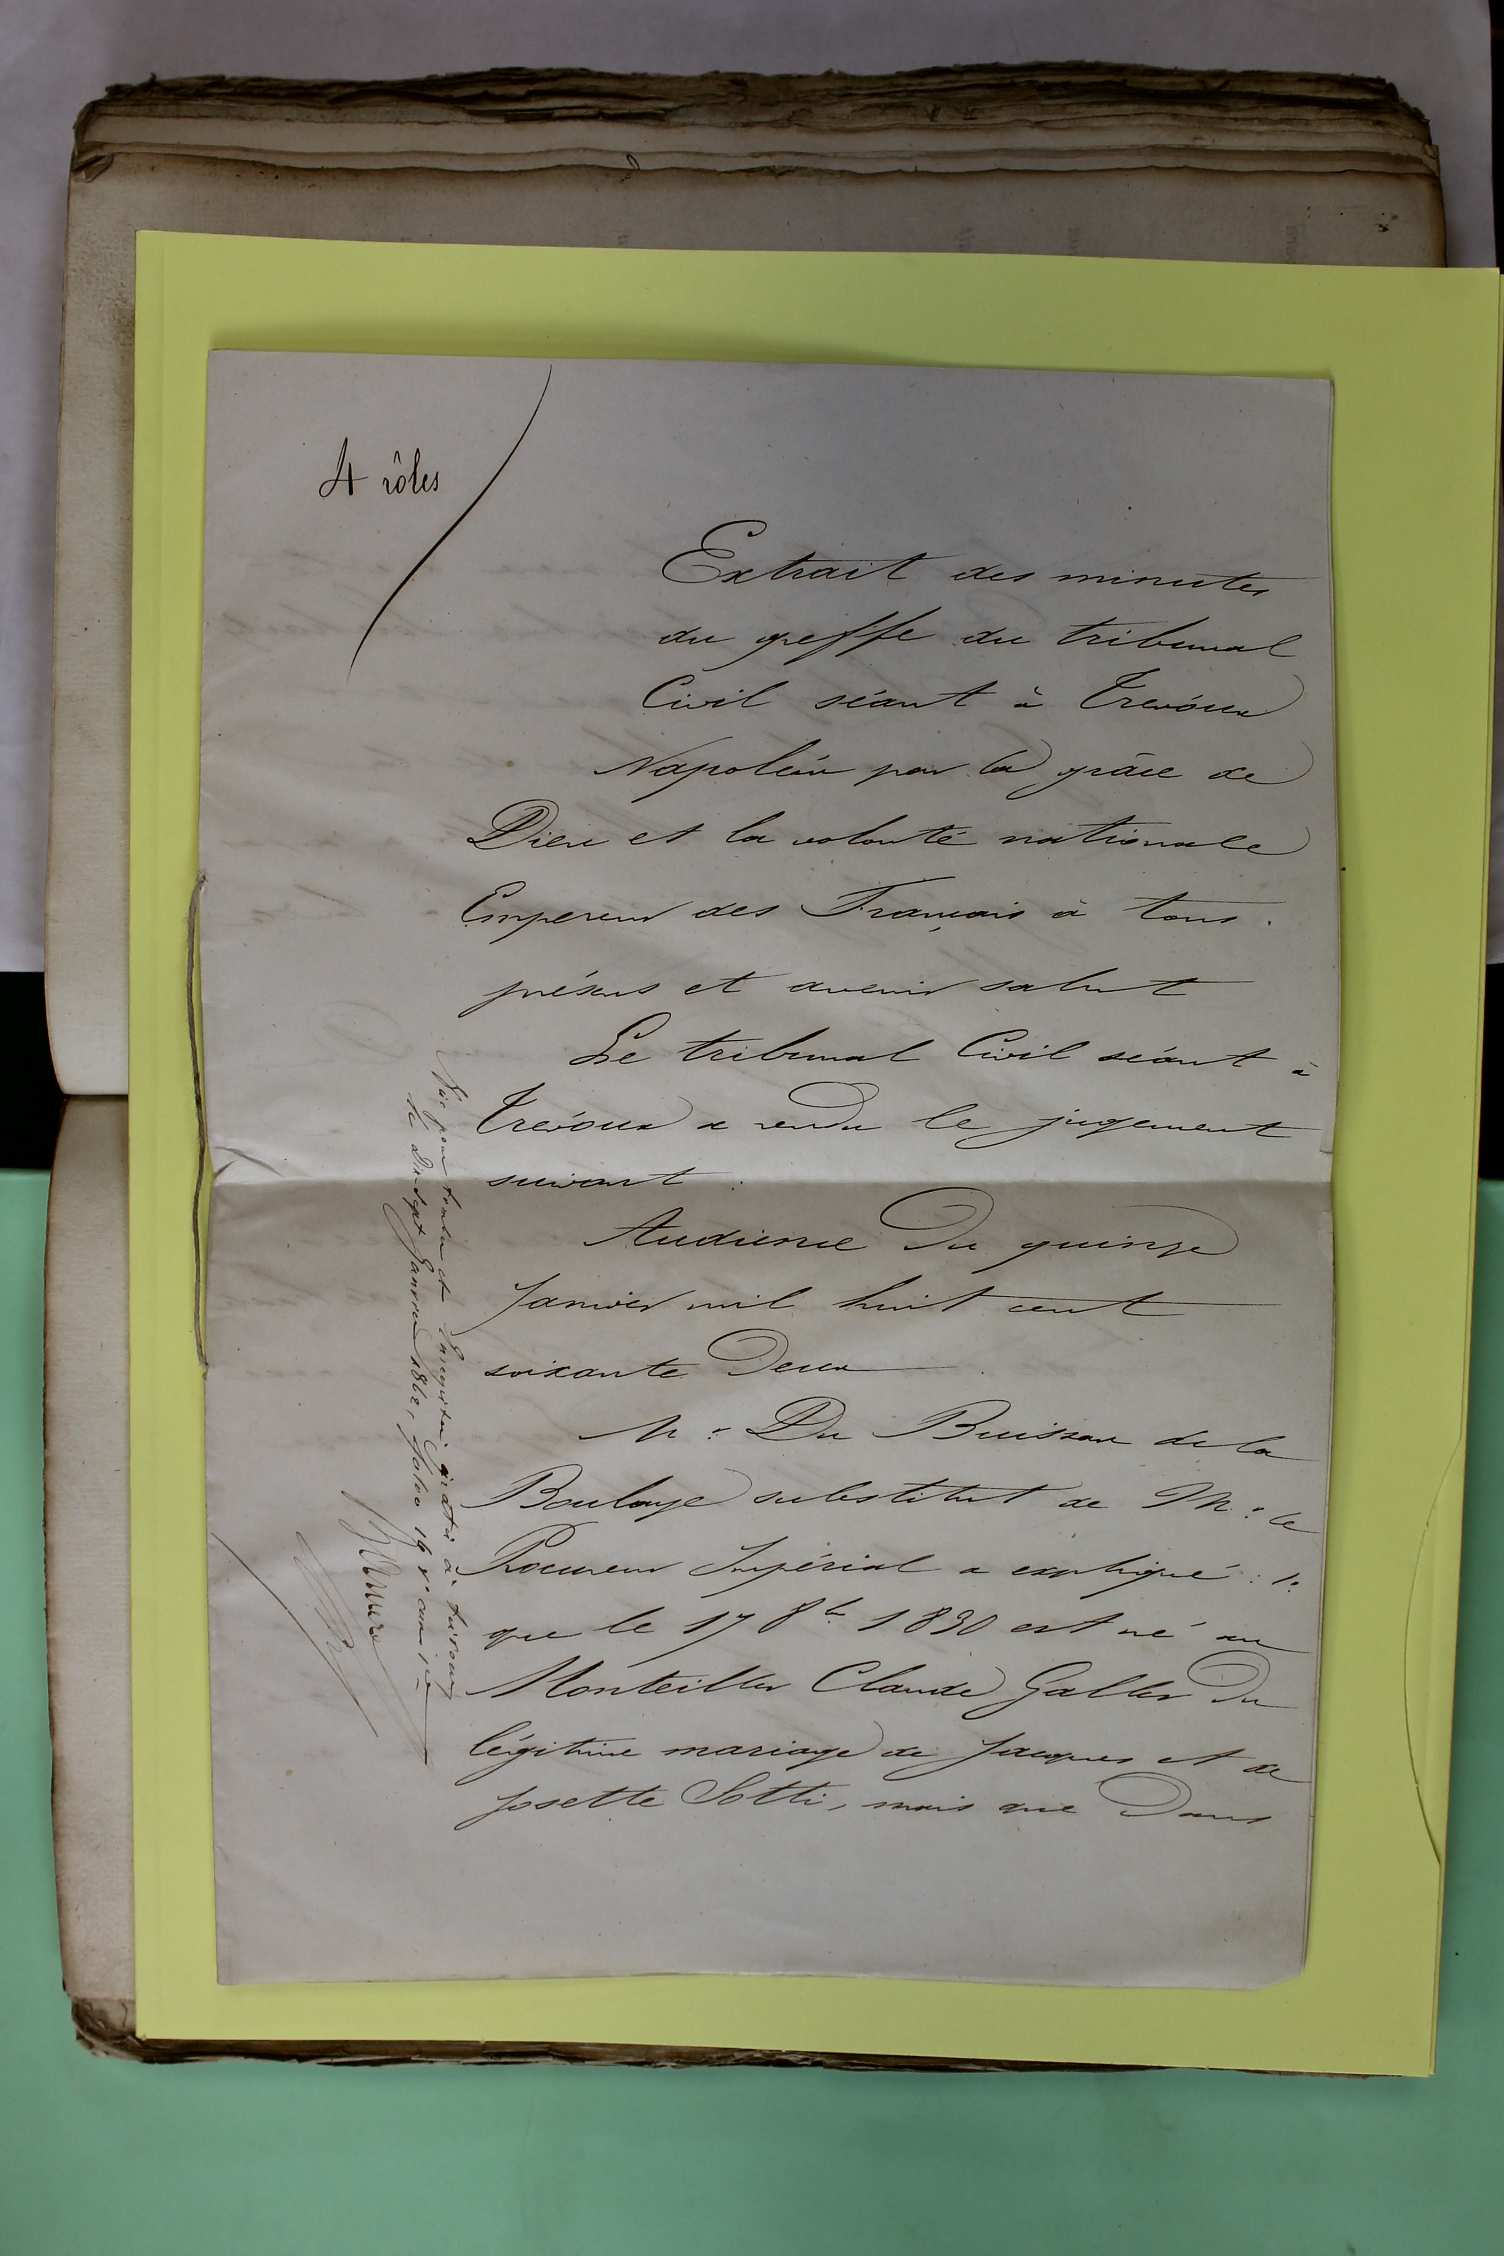 4 rôles
Extrait des minutes
du greffe du tribunal
Civil séant à Trevoux
Napoléon par la grâce de
Dieu et la volonté nationale
Empereur des Français à tous
présens et avenir salut
Le tribunal Civil séant à
Trévoux a rendu le jugement
suivant :
Audience du quinze
Janvier mil huit cent
soixante deux
Mr. Du Buisson de la
Boulaye substitut de Mr. le
Procureur Impérial a expliqué : 1.
que le 17 8bre 1830 est né au
Monteiller Claude Gallet du
légitime mariage de Jacques et de
Josette Sotti, mais que dans
Visé pour timbre et Enregistré gratis à Trévoux
le Dix sept Janvier 1862, folio 19